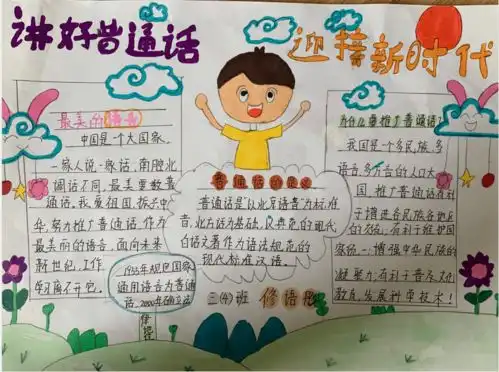 讲好普通话
迎接新时代
最美的语言
中国是一个大国家,
一家人说一家话,南腔北
调话不同,最美要数普
通话,我爱祖国,振兴中
华,努力推广普通话,作为
最美丽的语言,面向未来
新世纪,工作
学习离不开它。
1955年规定国家
通用语言为普通
话,2000年确立法
普通话的定义
普通话是以北京语音为标准
音,北方话为基础,以典范的现代
白话文著作为语法规范的
现代标准汉语。
三(4)班 修语
为什么要推广普通话?
我国是一个多民族,多
语言,多方言的人口大
国,推广普通话有利
于增进各民族各地区
的交流,有利于维护国
家统一,增强中华民族的
凝聚力,有利于普及文化
教育,发展科学技术!